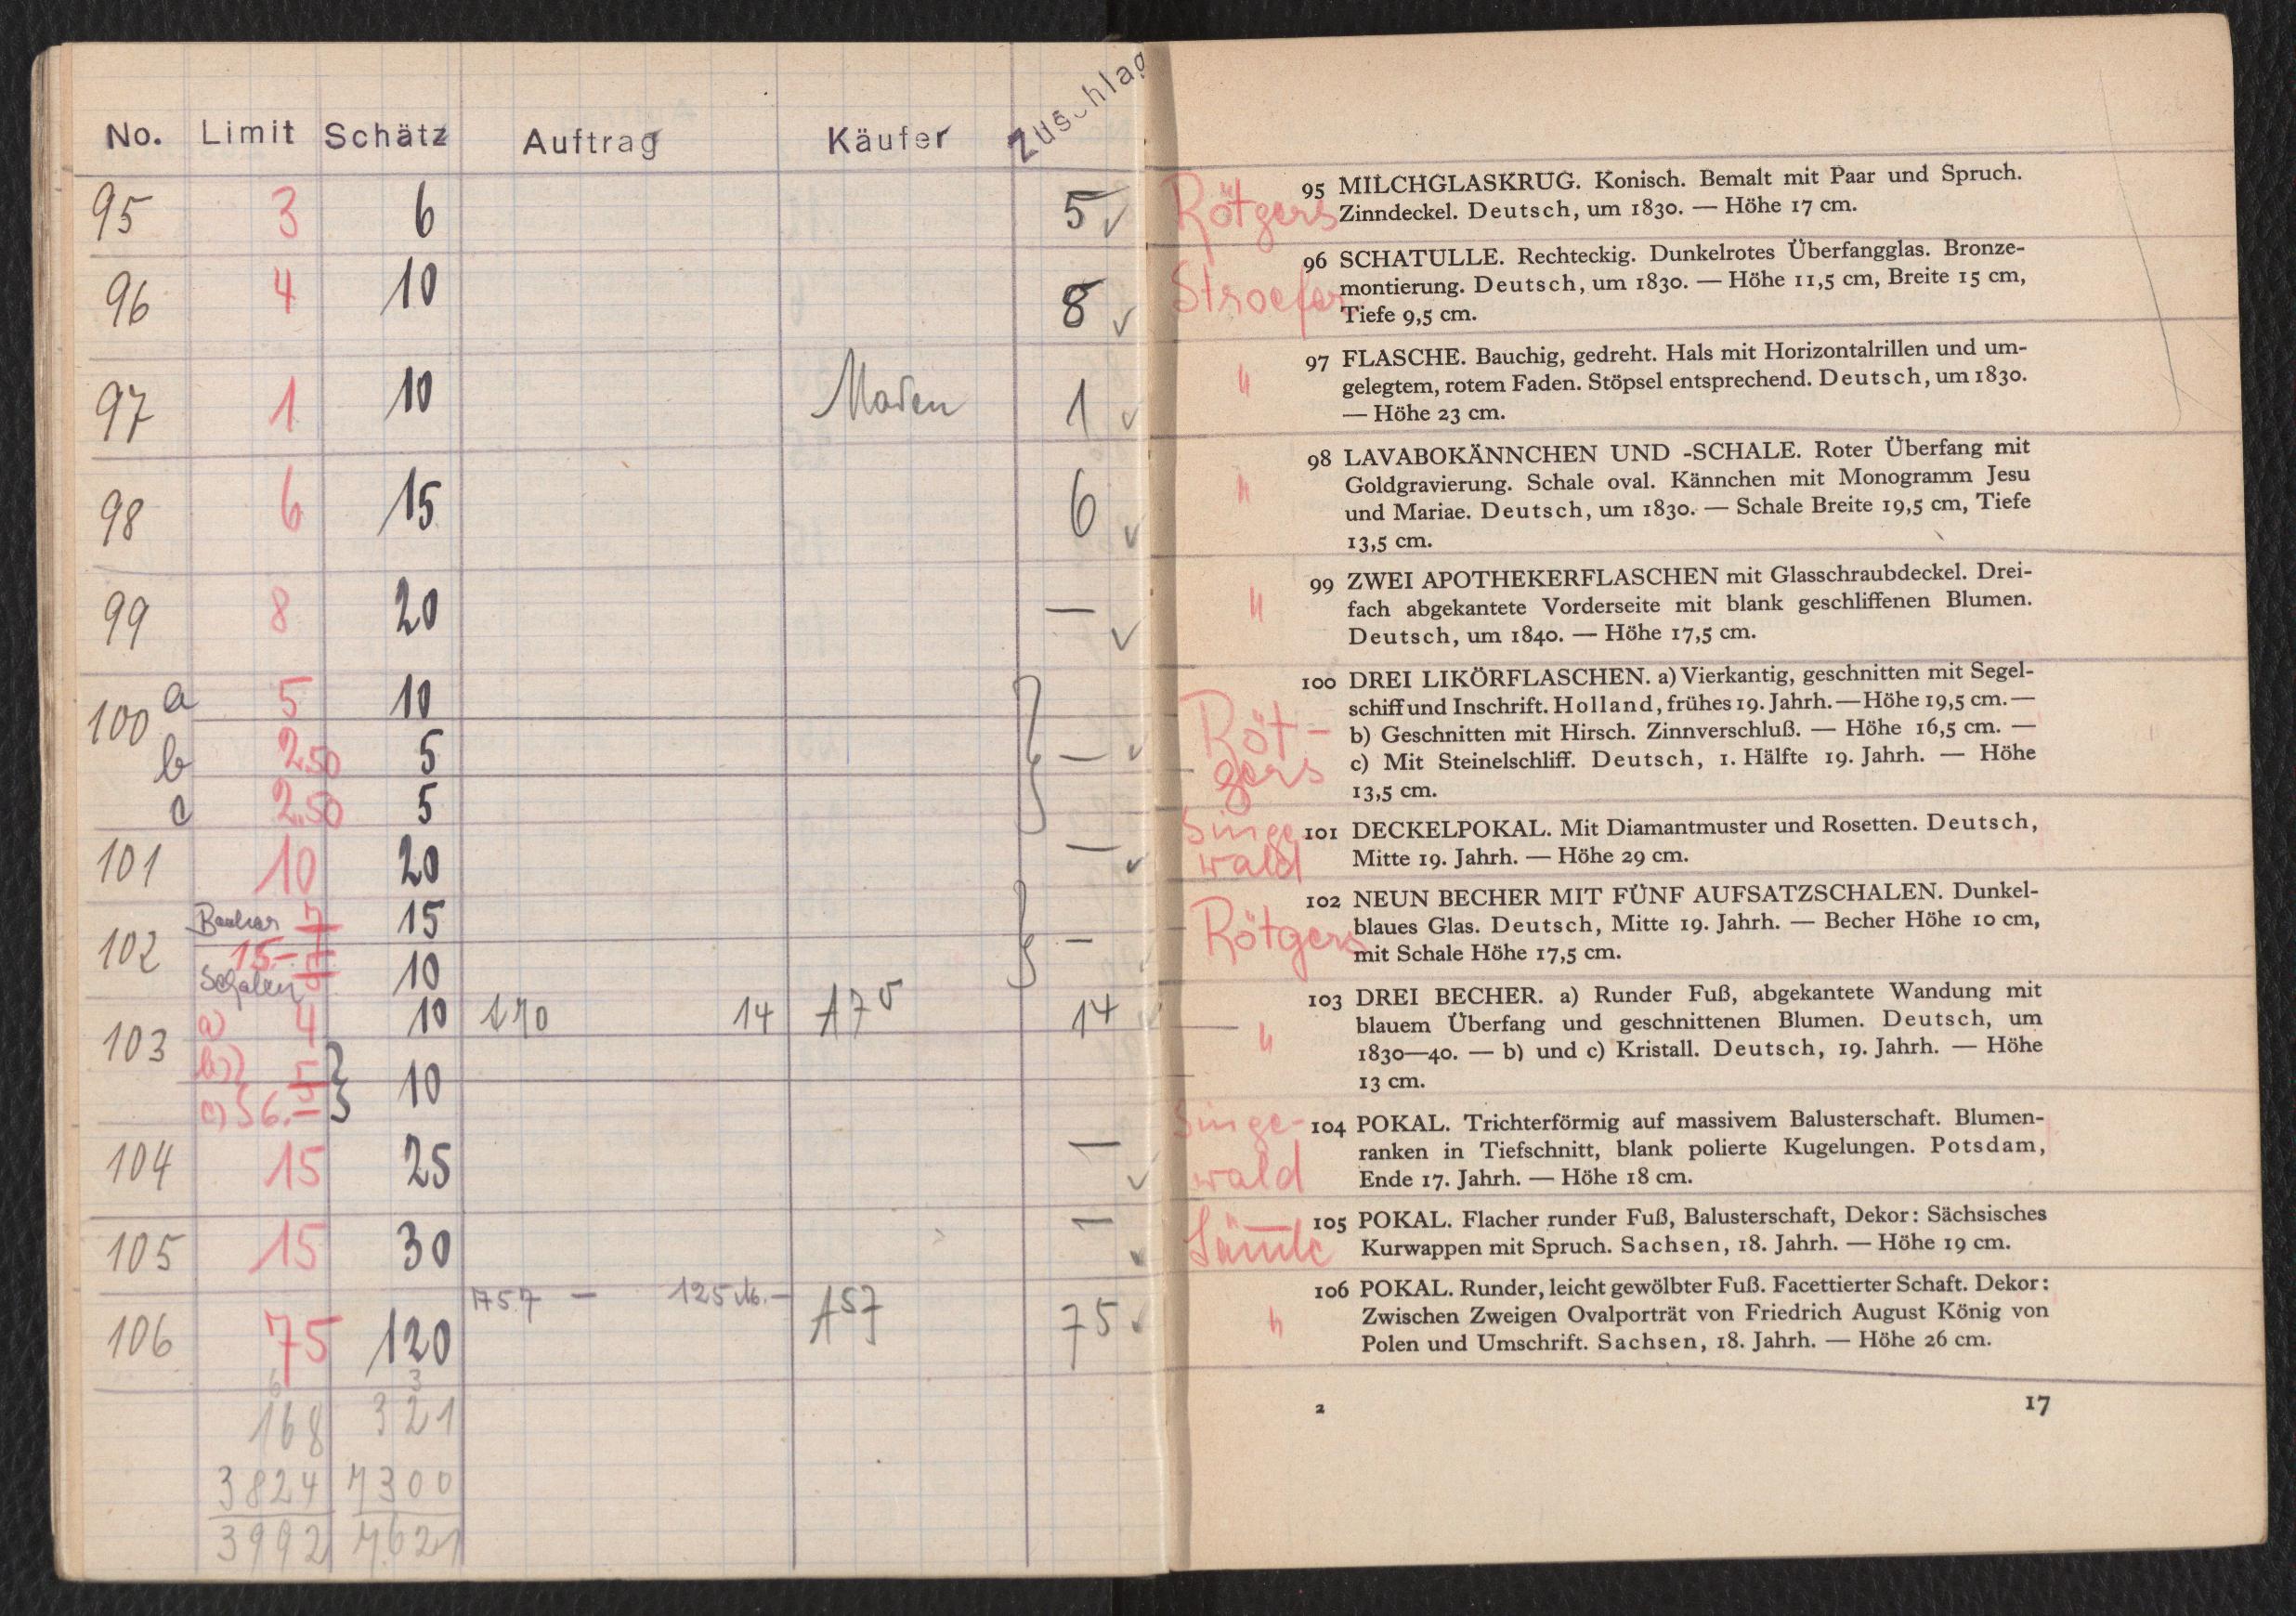 No. Limit Schätz Auftrag Käufer Zuschlag
95 3 6 5 ✓
96 4 10 8 ✓
97 1 10 1 ✓
98 6 15 6 ✓
99 8 20 — ✓
100 a 5 10
b 2.50 5 — ✓
c 2.50 5
101 10 20 — ✓
102 Becher 7 15
15.- —
Schalen 5 10
103 a) 4 10 14 14
b) 5 10
c) 6.–
104 15 25 — ✓
105 15 30 — ✓
— 125 M.–
106 75 120 A57 75 ✓
168 321
3824 7300
3992 7621
Rötgers
95 MILCHGLASKRUG. Konisch. Bemalt mit Paar und Spruch.
Zinndeckel. Deutsch, um 1830. — Höhe 17 cm.
Stroefer
96 SCHATULLE. Rechteckig. Dunkelrotes Überfangglas. Bronze-
montierung. Deutsch, um 1830. — Höhe 11,5 cm, Breite 15 cm,
Tiefe 9,5 cm.
"
97 FLASCHE. Bauchig, gedreht. Hals mit Horizontalrillen und um-
gelegtem, rotem Faden. Stöpsel entsprechend. Deutsch, um 1830.
— Höhe 23 cm.
"
98 LAVABOKÄNNCHEN UND -SCHALE. Roter Überfang mit
Goldgravierung. Schale oval. Kännchen mit Monogramm Jesu
und Mariae. Deutsch, um 1830. — Schale Breite 19,5 cm, Tiefe
13,5 cm.
"
99 ZWEI APOTHEKERFLASCHEN mit Glasschraubdeckel. Drei-
fach abgekantete Vorderseite mit blank geschliffenen Blumen.
Deutsch, um 1840. — Höhe 17,5 cm.
Röt-
gers
100 DREI LIKÖRFLASCHEN. a) Vierkantig, geschnitten mit Segel-
schiff und Inschrift. Holland, frühes 19. Jahrh. — Höhe 19,5 cm. —
b) Geschnitten mit Hirsch. Zinnverschluß. — Höhe 16,5 cm. —
c) Mit Steinelschliff. Deutsch, 1. Hälfte 19. Jahrh. — Höhe
13,5 cm.
Singe
wald
101 DECKELPOKAL. Mit Diamantmuster und Rosetten. Deutsch,
Mitte 19. Jahrh. — Höhe 29 cm.
Rötgers
102 NEUN BECHER MIT FÜNF AUFSATZSCHALEN. Dunkel-
blaues Glas. Deutsch, Mitte 19. Jahrh. — Becher Höhe 10 cm,
mit Schale Höhe 17,5 cm.
"
103 DREI BECHER. a) Runder Fuß, abgekantete Wandung mit
blauem Überfang und geschnittenen Blumen. Deutsch, um
1830—40. — b) und c) Kristall. Deutsch, 19. Jahrh. — Höhe
13 cm.
Singe-
wald
104 POKAL. Trichterförmig auf massivem Balusterschaft. Blumen-
ranken in Tiefschnitt, blank polierte Kugelungen. Potsdam,
Ende 17. Jahrh. — Höhe 18 cm.
105 POKAL. Flacher runder Fuß, Balusterschaft, Dekor: Sächsisches
Kurwappen mit Spruch. Sachsen, 18. Jahrh. — Höhe 19 cm.
"
106 POKAL. Runder, leicht gewölbter Fuß. Facettierter Schaft. Dekor:
Zwischen Zweigen Ovalporträt von Friedrich August König von
Polen und Umschrift. Sachsen, 18. Jahrh. — Höhe 26 cm.
2
17